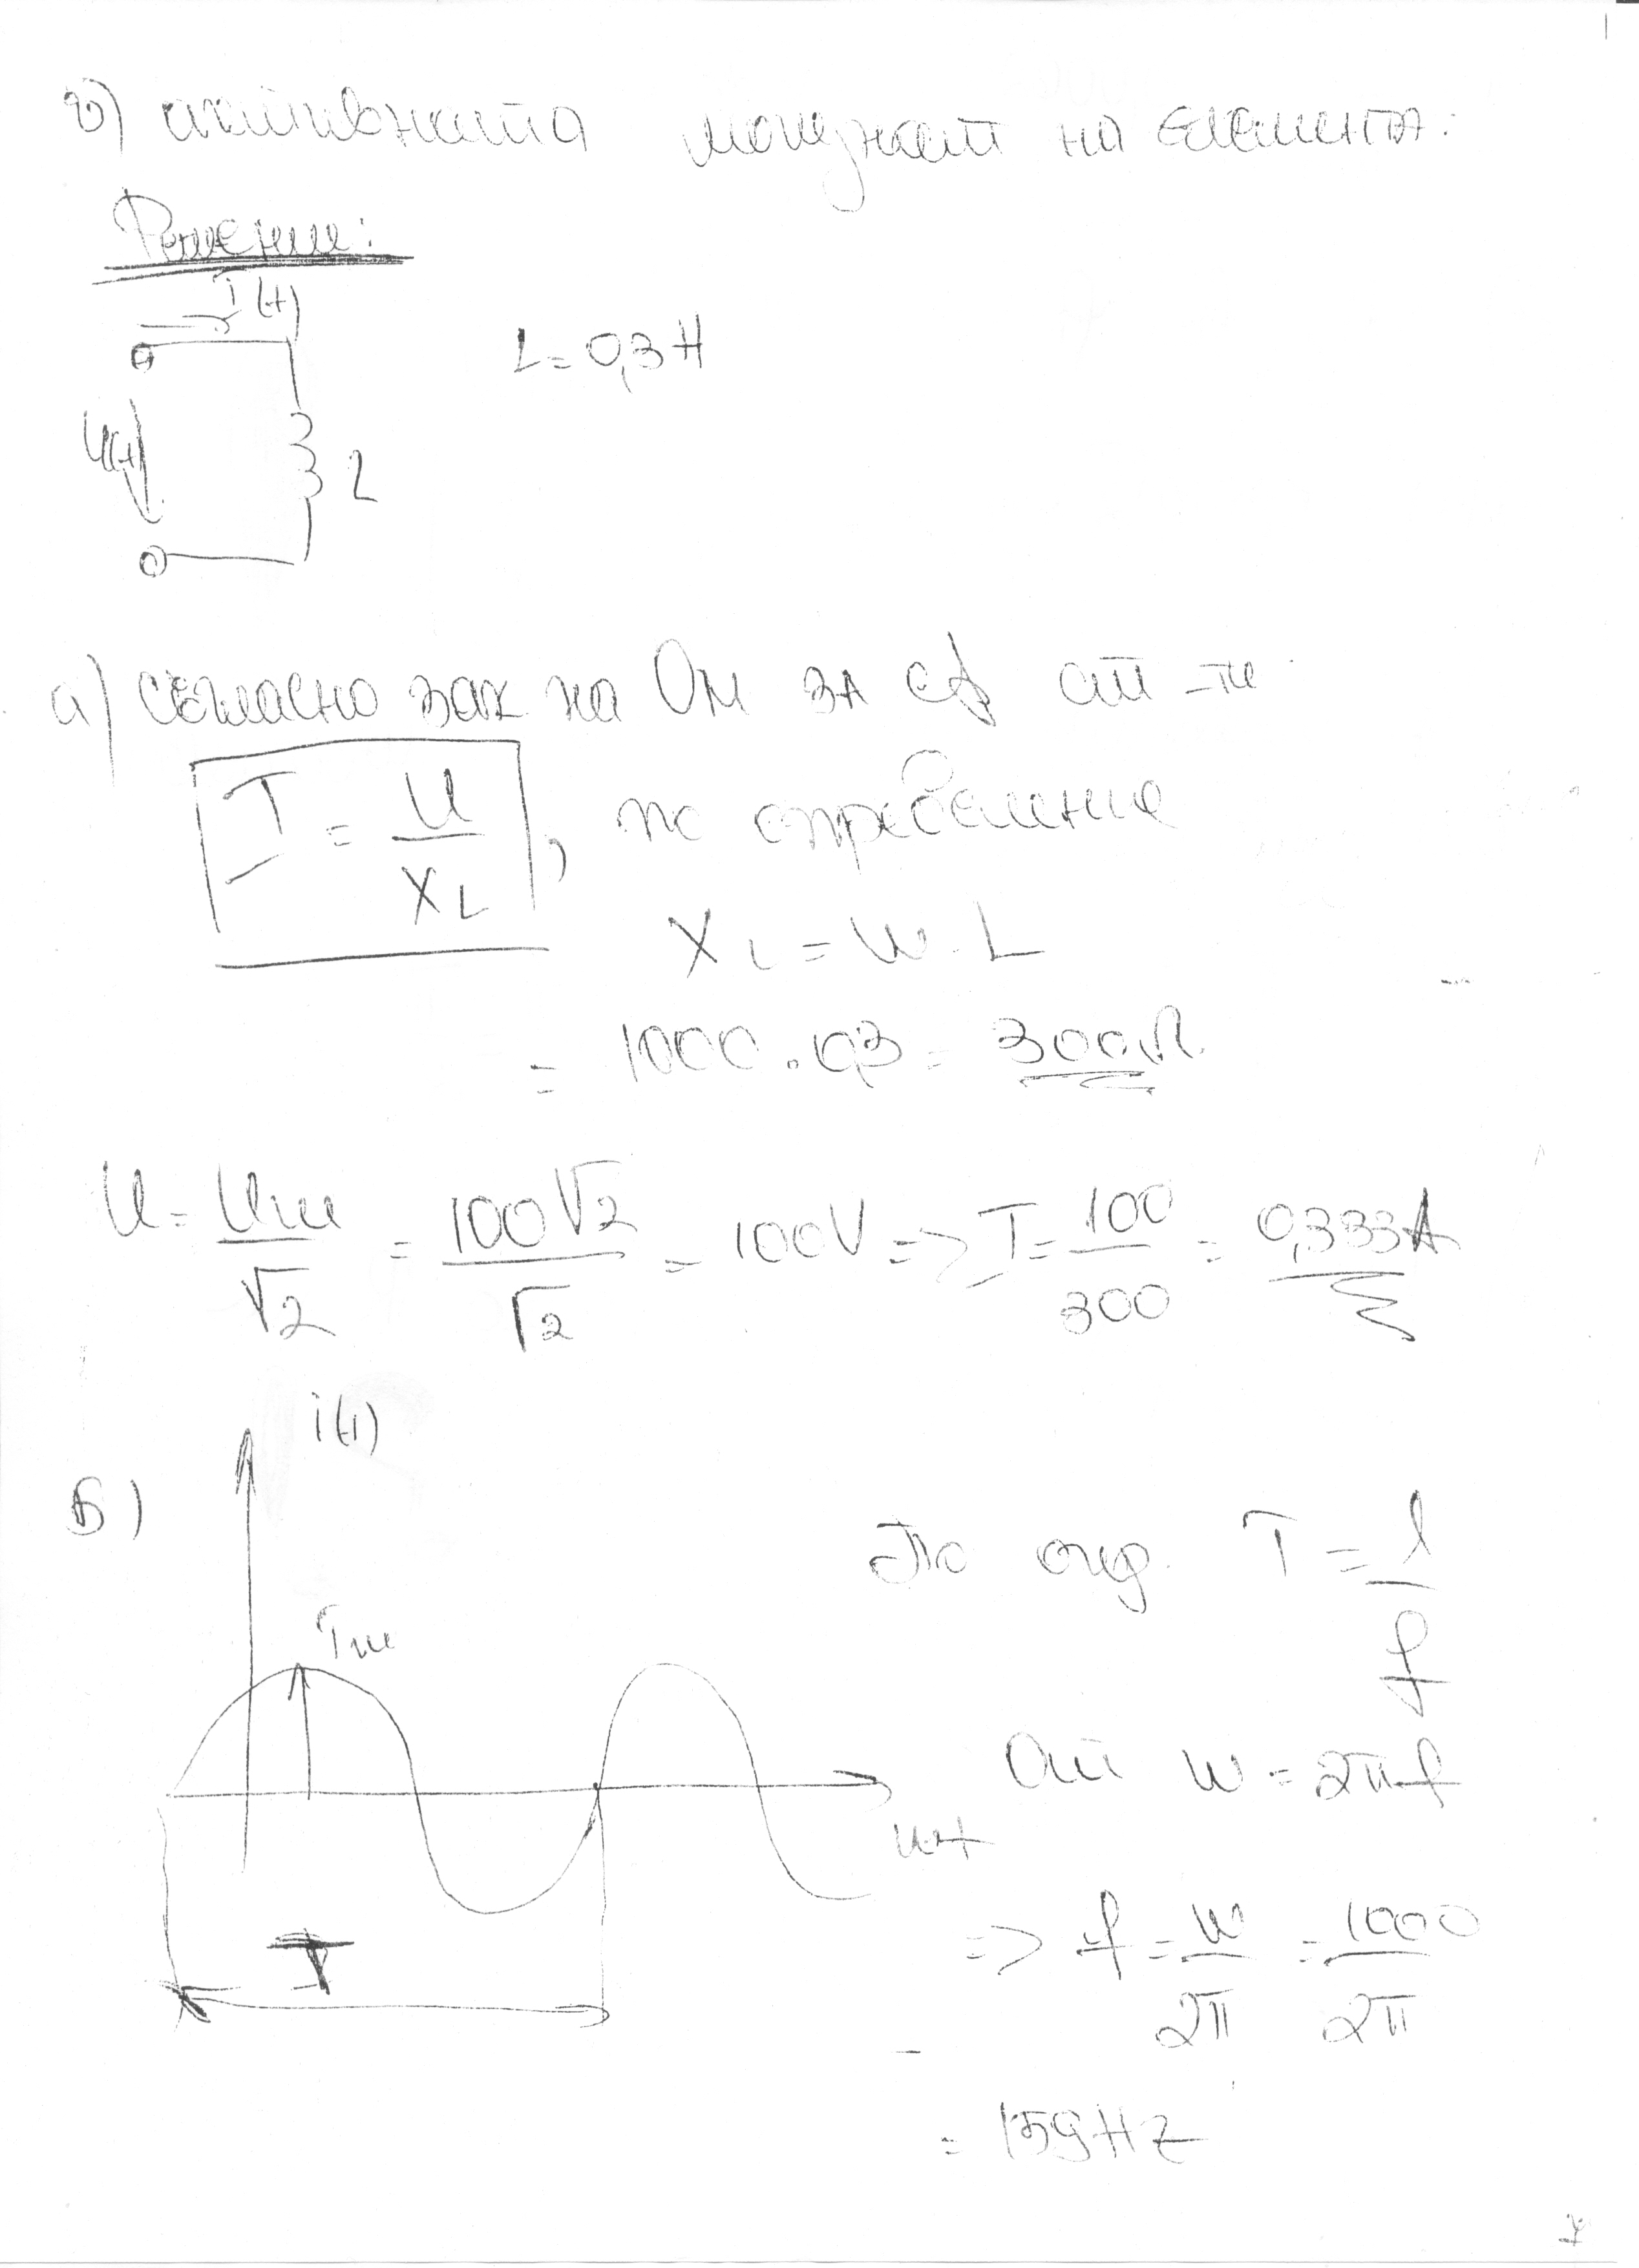 в) активната мощност на елемента:
Решение:
I(t)
L = 0,3 H
U(t)
L
а) съгласно зак на Ом за еф ст-ти
I = U / XL , по определение
XL = w . L
= 1000 . 0,3 = 300 Ω
U = Um / √2 = 100√2 / √2 = 100V => I = 100 / 300 = 0,333A
i(t)
Б)
По опр. T = 1 / f
Im
От w = 2πf
wt
=> f = w / 2π = 1000 / 2π
T
= 159Hz